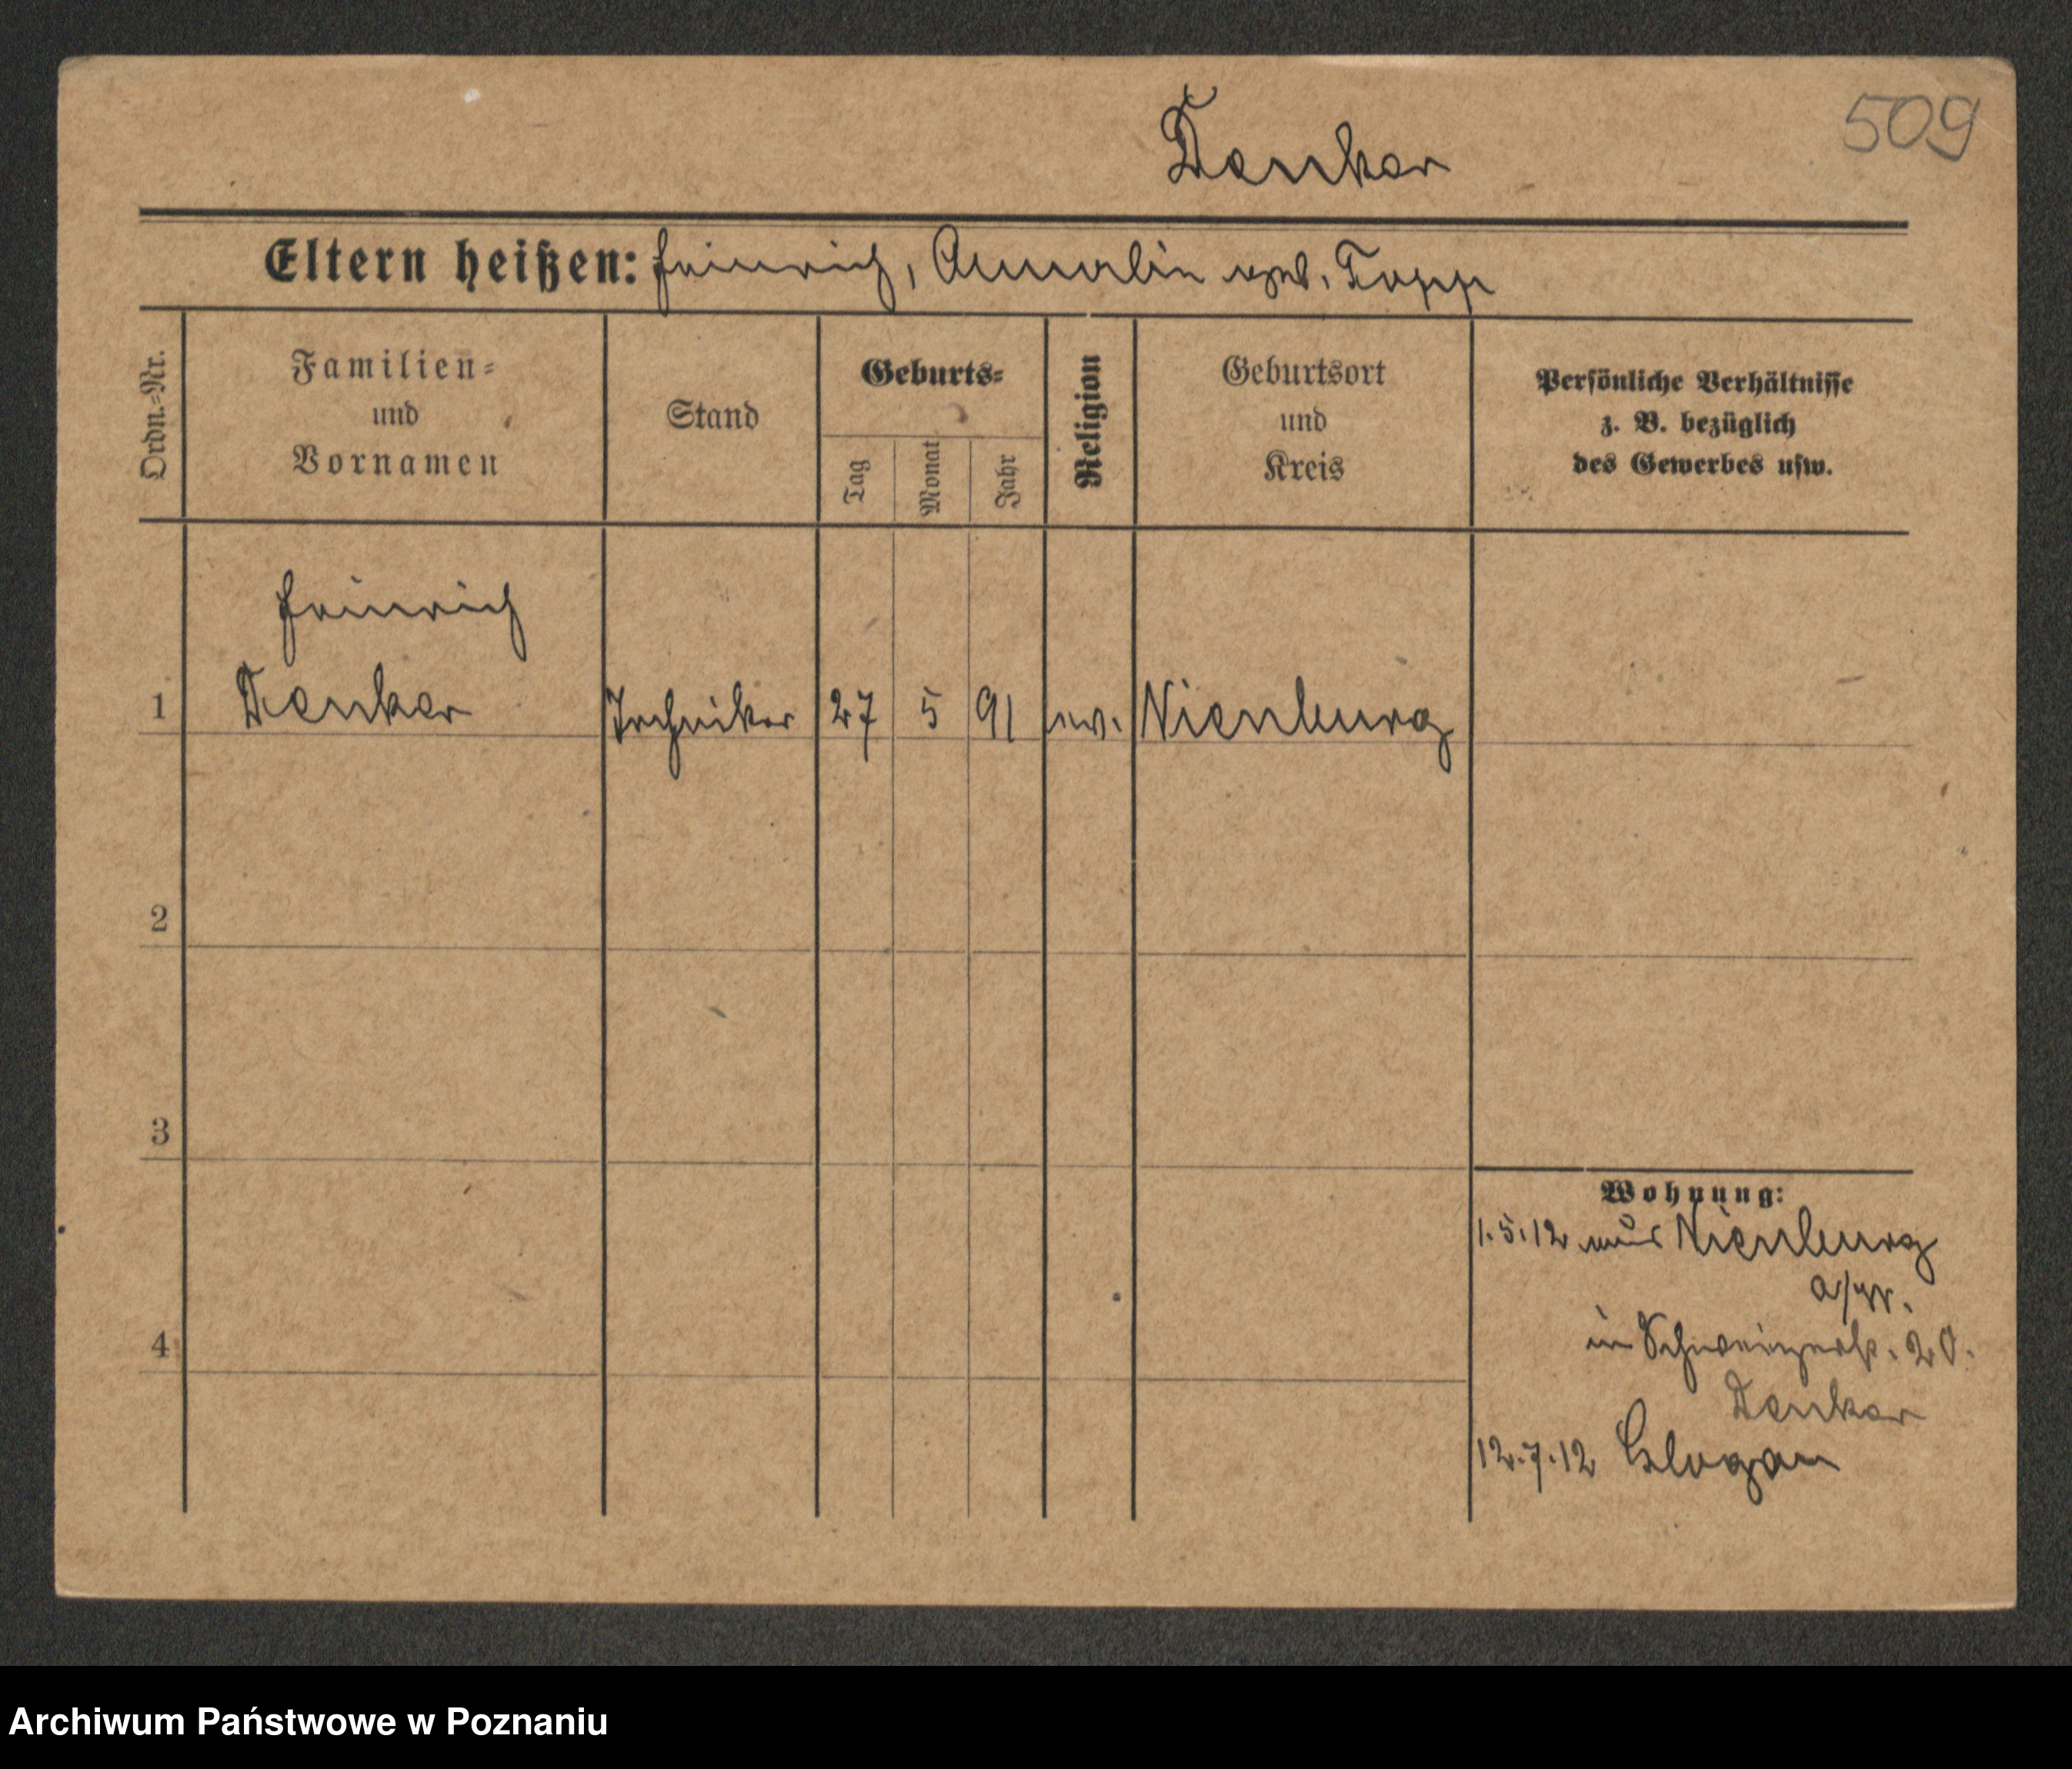 509
Denker
Eltern heißen: Heinrich, Annalin geb. Topp
Ordn.=Nr.
Familien=
und
Vornamen
Stand
Geburts=
Tag
Monat
Jahr
Religion
Geburtsort
und
Kreis
Persönliche Verhältnisse
z. B. bezüglich
des Gewerbes usw.
Heinrich
1 Denker Techniker 27 5 91 ev. Nienburg
2
3
4
Wohnung:
1.5.12 aus Nienburg
a/W.
in 20.
Denker
12.7.12 Glogau
Archiwum Państwowe w Poznaniu